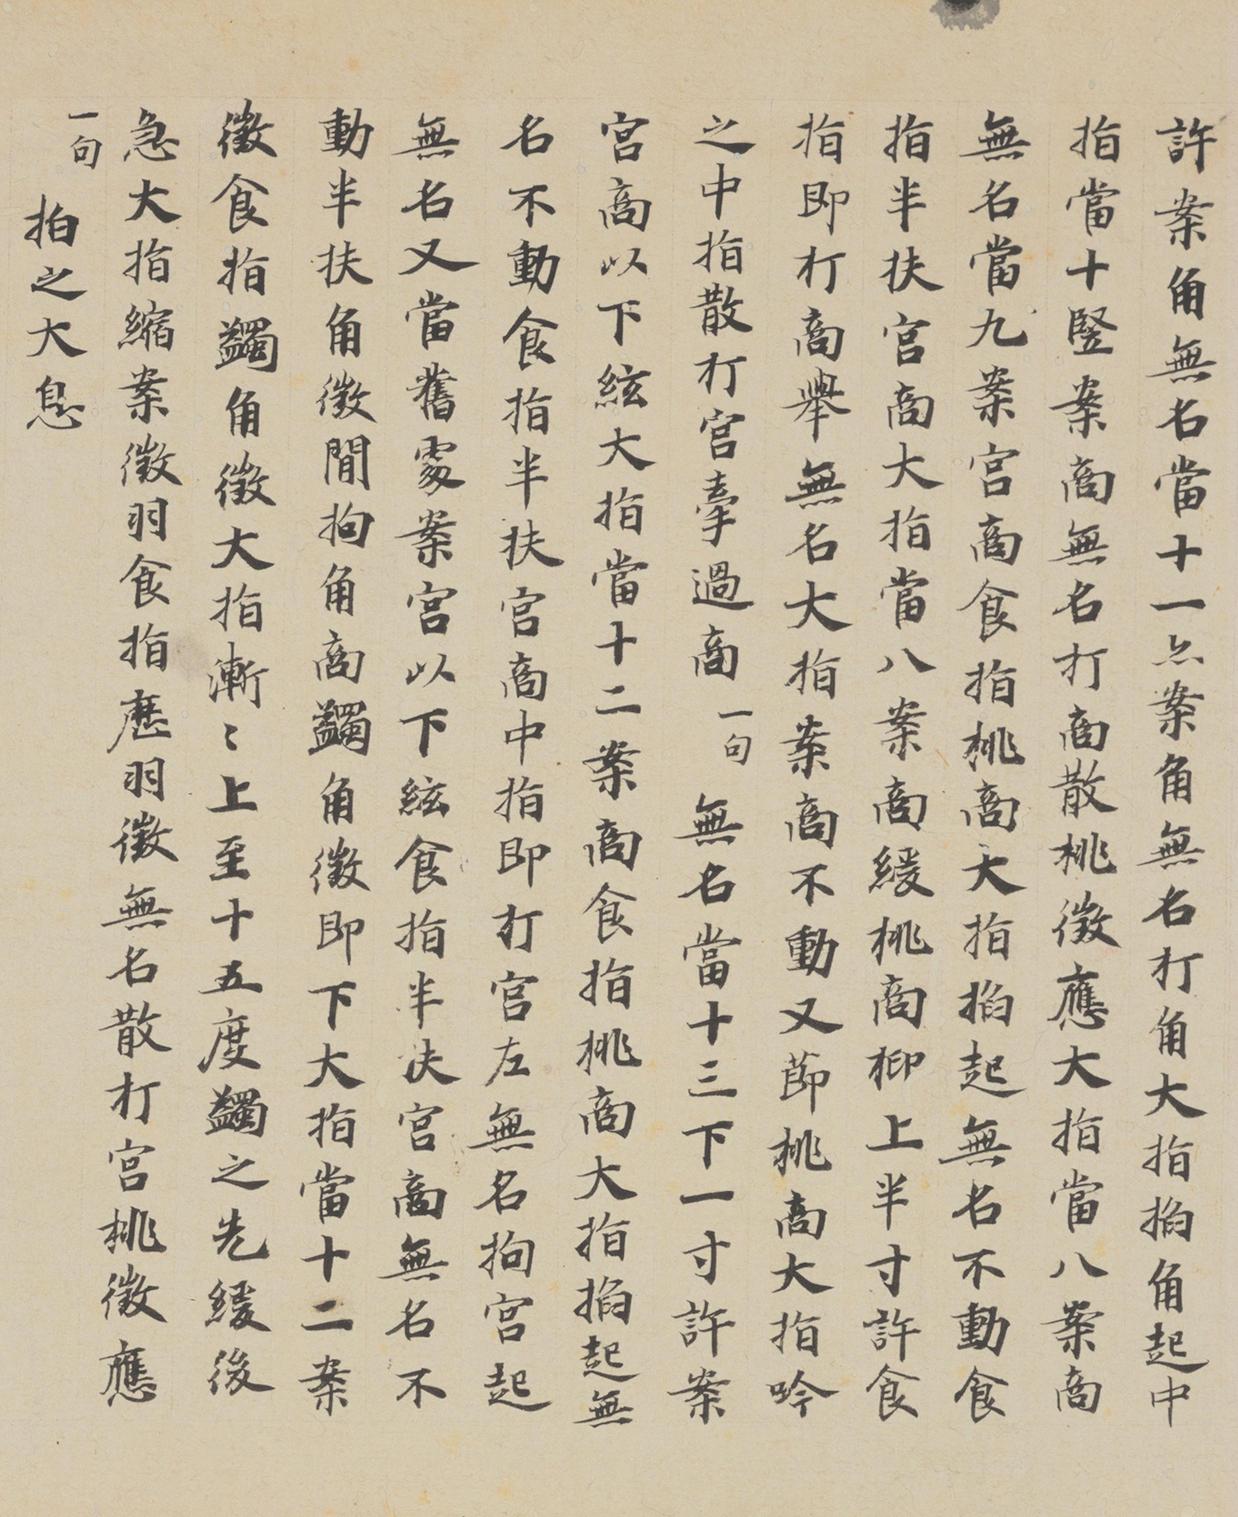 許案角無名當十一㸃案角無名打角大指掐角起中
指當十竪案商無名打商散桃徵應大指當八案商
無名當九案宫商食指桃商大指掐起無名不動食
指半扶宫商大指當八案商緩桃商抑上半寸許食
指即打商舉無名大指案商不動又莭桃商大指吟
之中指散打宫牽過商一句無名當十三下一寸許案
宫商以下絃大指當十二案商食指桃商大指掐起無
名不動食指半扶宫商中指即打宫左無名拘宫起
無名又當舊處案宫以下絃食指半扶宫商無名不
動半扶角徵間拘角商蠲角徵即下大指當十二案
徵食指蠲角徵大指漸〻上至十五度蠲之先緩後
急大指縮案徵羽食指歷羽徵無名散打宫桃徵應
一句拍之大息